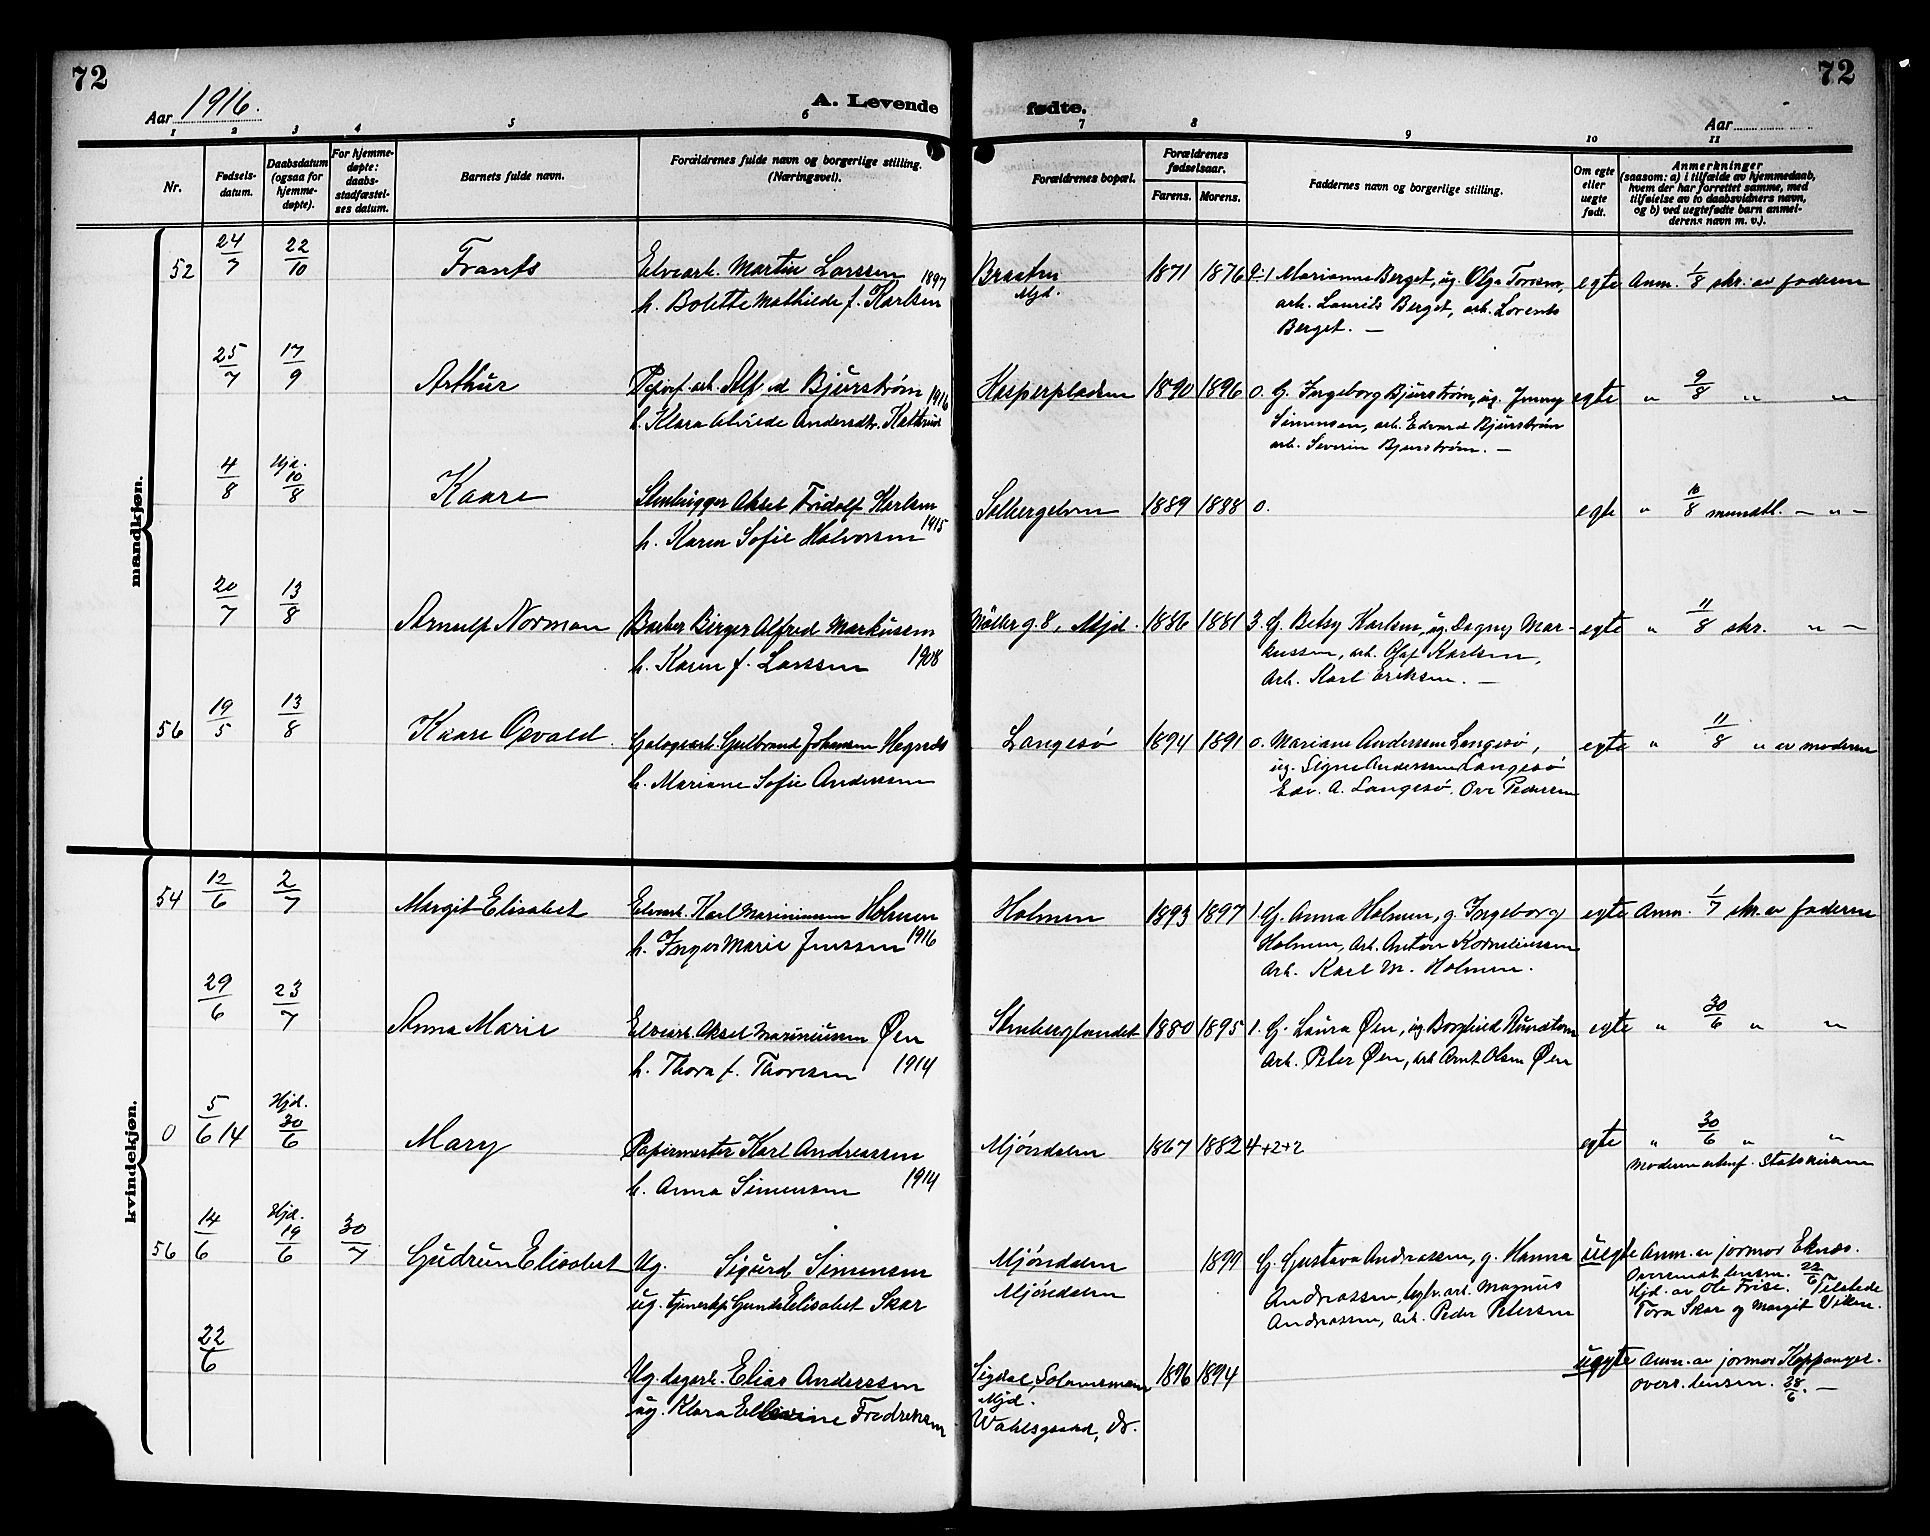 72
Aar 1916.
A. Levende
fødte.
72
Aar
1 2 3 4 5 6 7 8 9 10 11
Nr.
Fødsels-
datum.
Daabsdatum
(ogsaa for
hjemme-
døpte).
For hjemme-
døpte:
daabs-
stadfæstel-
ses datum.
Barnets fulde navn.
Forældrenes fulde navn og borgerlige stilling.
(Næringsvei).
Forældrenes bopæl.
Forældrenes
fødselsaar.
Farens. Morens.
Faddernes navn og borgerlige stilling.
Om egte
eller
uegte
født.
Anmerkninger
(saasom: a) i tilfælde av hjemmedaab,
hvem der har forrettet samme, med
tilføielse av to daabsvidners navn,
og b) ved uegtefødte barn anmel-
derens navn m. v.).
mandkjøn.
52 24/7 22/10 Frants Elvearb. Martin Larssen 1897 Braaten 1871 1876 Marianne Berget, ug. Olga egte Anm. 1/8 skr. av faderen
h. Bolette Mathilde f. Karlsen Mjd. arb. Laurits Berget, arb. Lorents
Berget. —
25/7 17/9 Arthur Bjurstrøm 1916 Kasperpladsen 1890 1896 0. G. Ingeborg Bjurstrøm, ug. Jenny egte " 9/8 " "
h. Klara Alvide Andersdtr. Simensen, arb. Edvard Bjurstrøm
arb. Severin Bjurstrøm. —
4/8 Hjd. 10/8 Kaare Aksel Fridolf Karlsen 1915 Solbergelven 1889 1888 0. egte " 8 mundtl. — " —
h. Karen Sofie Halvorsen
20/7 13/8 Arnulf Norman Barber Birger Alfred Markussen Møller g. 8, Mjd. 1886 1881 3. G. Betsy Karlsen, ug. Dagny Mar- egte " 11/8 skr. " —
h. Karen f. Larssen 1908 kussen, arb. Olaf Karlsen,
arb. Karl Eriksen. —
56 19/5 13/8 Kaare Osvald Gulbrand Johansen Hegnes Langesø 1894 1891 0. Mariane Anderssen Langesø, egte " 11/8 " av moderen
h. Mariane Sofie Anderssen ug. Signe Anderssen Langesø
Edv. A. Langesø. Ove Pedersen
kvindekjøn.
54 12/6 2/7 Margit Elisabet Elvearb. Karl Mariniussen Holmen Holmen 1893 1897 1. G. Anna Holmen, g. Ingeborg egte Anm. 1/7 skr. av faderen
h. Inger Marie Jenssen 1916 Holmen, arb. Anton Korneliussen
arb. Karl M. Holmen.
29/6 23/7 Anna Marie Elvearb. Aksel Mariniussen Øen Stenberglandet 1880 1895 1. G. Laura Øen, ug. Borghild egte " 30/6 " "
h. Thora f. Thoresen 1914 arb. Peter Øen, arb. Arnt Olsen Øen
0 5/6 14 Hjd. 30/6 Mary Papirmester Karl Andreassen Mjøndalen 1867 1882 4+2+2 egte " 30/6 " "
h. Anna Simensen 1914 Moderen Statskirken
56 14/6 Hjd. 19/6 30/7 Gudrun Elisabet Ug. Sigurd Simensen Mjøndalen 1899 G. Gustava Andreassen, g. Hanna uegte Anm. av jormor Eknæs.
ug. tjenestep. Gunda Elisabet Skar Mjøndalen Andreassen, arb. Magnus Oversendt lensm. 22/6
Andreassen, arb. Peder Petersen Hjd. av Ole Friise. Tilstede
Tora Skar og Margit Viken.
22/6 Ug. dagarb. Elias Anderssen Sigdal, 1896 1894 uegte Anm. av jormor Koppangen.
ug. Klara Ellevine Fredriksen Mjd. overs. lensm. 28/6. —
Wahlsgaard, Dr.